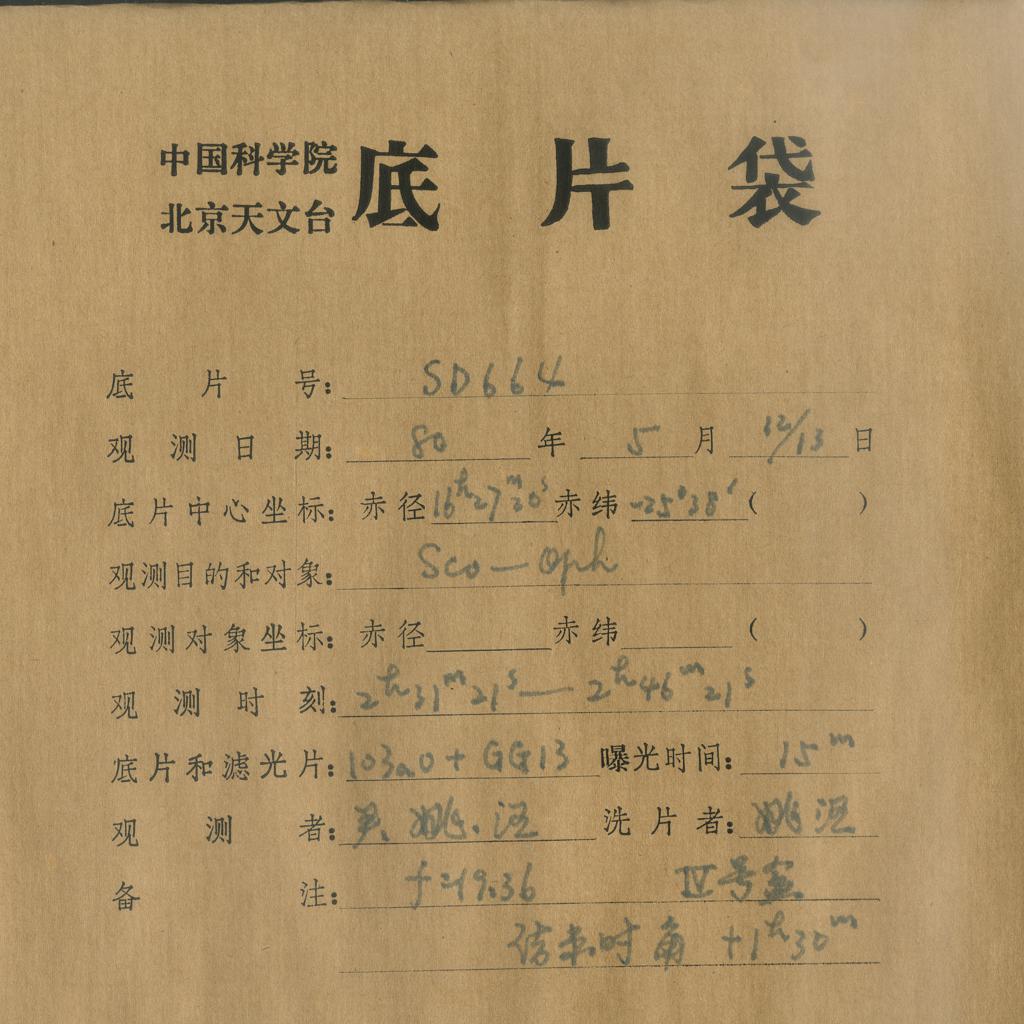 中国科学院
北京天文台
底片袋
底片号: SD664
观测日期: 80 年 5 月 12/13 日
底片中心坐标: 赤径 16h27m20s 赤纬 -25°38′ ( )
观测目的和对象: Sco — Oph
观测对象坐标: 赤径 赤纬 ( )
观测时刻: 2h31m21s — 2h46m21s
底片和滤光片: 103aO + GG13 曝光时间: 15m
观测者: 姚. 洗片者: 姚
备注: f=19.36 Ⅳ号盒
结束时角 +1h30m